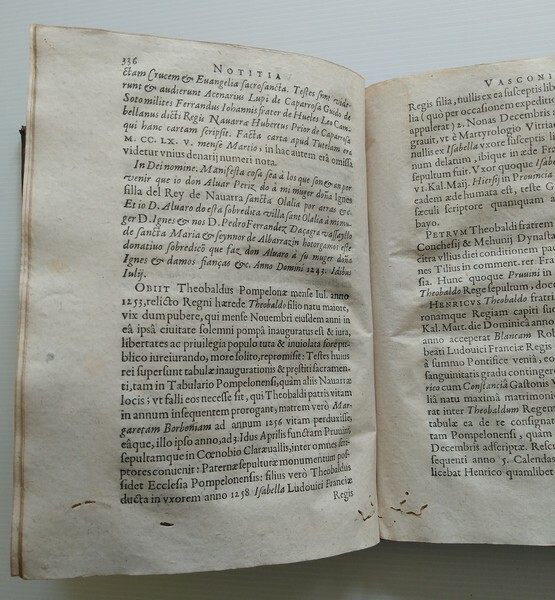 336
NOTITIA
ctam Crucem & Euangelia sacrosancta. Testes sunt vide-
runt & audierunt Acenarius Lupi de Caparrosa Guido de
Sotomilites Ferrandus Iohannis frater de Hueles Leo Cam-
bellanus dicti Regis Nauarræ Hubertus Prior de Caparrosa
qui hanc cartam scripsit. Facta carta apud Tutelam era
M. CC. LX. V. mense Martio; in hac autem era omissa
videtur vnius denarij numeri nota.
In Dei nomine. Manifesta cosa sea à los que son & an per
venir que io don Aluar Periz do à mi muger doña Ignes
filla del Rey de Nauarra sancta Olalia por arras &c.
Et io D. Aluaro do esta sobredica villa sant Olalia à mi mu-
ger D. Ignes & nos D. Pedro Ferrandez Daçagra vassayllo
de sancta Maria & seynnor de Albarrazin hotorgamos este
donatiuo sobredico que faz don Aluaro à su muger doña
Ignes & damos fianças &c. Anno Domini 1243. Idibus
Iulij.
OBIIT Theobaldus Pompelonæ mense Iul. anno
1253, relicto Regni hærede. Theobaldo filio natu maiore,
vix dum pubere, qui mense Nouembri eiusdem anni in
eâ ipsâ ciuitate solemni pompâ inauguratus est & iura,
libertates ac priuilegia populo tuta & inuiolata fore pu-
blico iureiurando, more solito, repromisit: Testes huius
rei supersunt tabulæ inaugurationis & præstiti sacramen-
ti, tam in Tabulario Pompelonensi, quàm aliis Nauarræ
locis; vt falli eos necesse sit, qui Theobaldi patris vitam
in annum insequentem prorogant, matrem verò Mar-
garetam Borboniam ad annum 1256 vitam perduxisse,
eâque, illo ipso anno, ad 3. Idus Aprilis functam Pruuini
sepultamque in Cœnobio Claræuallis, inter omnes scri-
ptores conuenit: Paternæ sepulturæ monumentum pos-
sidet Ecclesia Pompelonensis: filius verò Theobaldus
ducta in vxorem anno 1258 Isabella Ludouici Franciæ
Regis
VASCONI
Regis filia, nullis ex ea susceptis libe
lia (quò per occasionem expedit
appulerat) 2. Nonas Decembris a
grauit, vt è Martyrologio Vitria
nullis ex Isabella vxore susceptis
num delatum, ibique in æde Fra
sepultum fuir. Vxor quoque Isab
VI. Kal. Maij. Hiersij in Prouincia
ædem humata est, teste G
sæculi scriptore quamquam a
bayo.
PETRVM Theobaldi fratrem
Conchesij & Mehunij Dynasta
citra vllius dieti conditionem
nes Tilius in comment. rer Fra
si. Hunc quoque Pruuini in
Theobaldo Rege sepultum, docet
HENRICVS Theobaldo fratri
ronamque Regiam capiti suo
Kal. Mart. die Dominica anno
anno acceperat Blancam Rob
beati Ludouici Franciæ Regis
à summo Pontifice veniâ, eo
sanguinitatis gradu contingere
rico cum Constantiâ Gastonis V
liâ natu maximâ matrimoni
rat inter Theobaldum Regem
tabulæ ea de re consignat
tam Pompelonensi, quàm
Decembris adscriptæ. Resci
sequenti anno 5. Calendas
licebat Henrico quamlibet